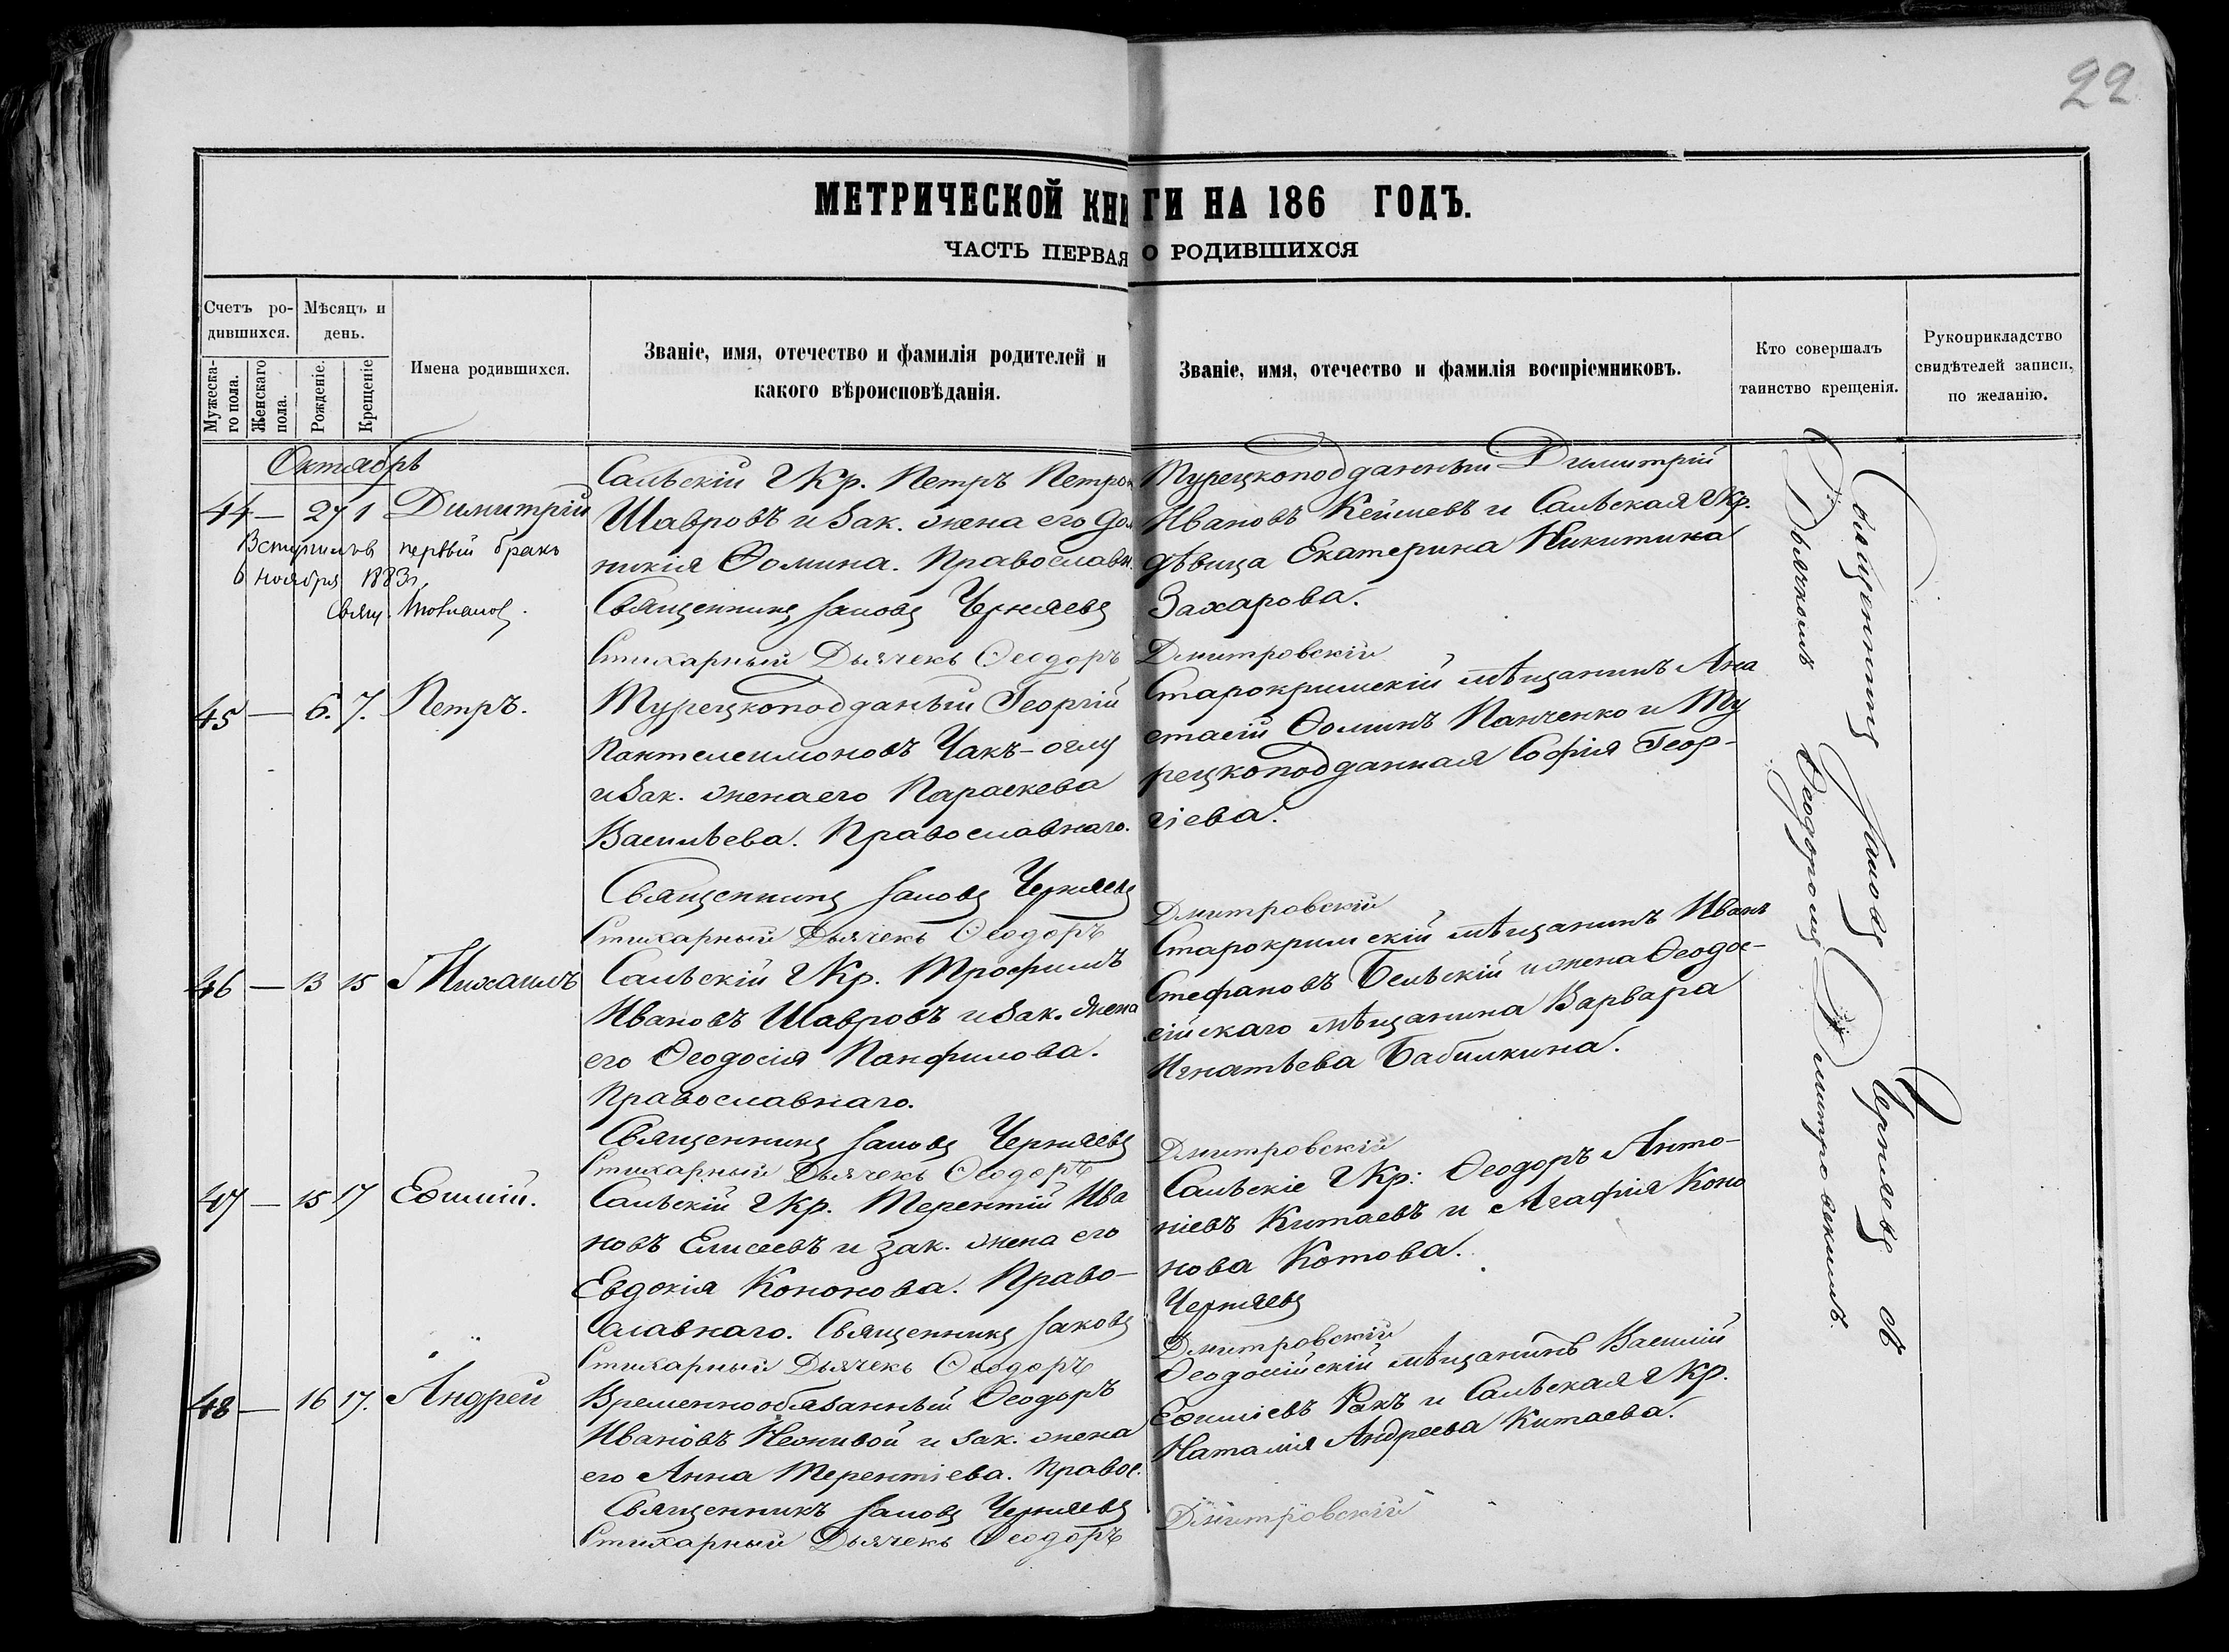 22
МЕТРИЧЕСКОЙ КНИГИ НА 186 ГОДЪ.
ЧАСТЬ ПЕРВАЯ О РОДИВШИХСЯ
Счетъ ро-
дившихся.
Мужеска-
го пола.
Женскаго
пола.
Мѣсяцъ и
день.
Рожденіе.
Крещеніе
Имена родившихся.
Званіе, имя, отечество и фамилія родителей и
какого вѣроисповѣданія.
Званіе, имя, отечество и фамилія воспріемниковъ.
Кто совершалъ
таинство крещенія.
Рукоприкладство
свидѣтелей записи,
по желанію.
Октябрь
44 — 27 1 Димитрій
Вступилъ въ первый бракъ
6 ноября 1883г.
Свящ.
Сальскій Г Кр. Петръ Петров
Шавровъ и зак. жена его До
никія Ѳомина. Православн.
Священникъ Іаковъ Черняевъ
Стихарный Дьячекъ Ѳеодоръ
Турецкоподданный Димитрій
Ивановъ Кейшевъ и Сальская Г Кр.
дѣвица Екатерина Никитина
Захарова.
Дмитровскій
45 — 6. 7. Петръ.
Турецкоподданый Георгій
Пантелеимоновъ Чакъ-оглу
и зак. жена его Параскева
Васильева. Православнаго.
Священникъ Іаковъ Черняевъ
Стихарный Дьячекъ Ѳеодоръ
Старокримскій мѣщанинъ Ана
стасій Ѳоминъ Панченко и Ту
рецкоподданная Софія Геор-
гіева.
Дмитровскій
46 — 13 15 Михаилъ
Сальскій Г Кр. Трофимъ
Ивановъ Шавровъ и зак. жена
его Ѳеодосія Панфилова.
Православнаго.
Священникъ Іаковъ Черняевъ
Стихарный Дьячекъ Ѳеодоръ
Старокримскій мѣщанинъ Иванъ
Стефановъ Бельскій и жена Ѳеодос-
ійскаго мѣщанина Варвара
Игнатьева Бабилкина.
Дмитровскій
47 — 15 17 Еѳимій.
Сальскій Г Кр. Терентій Ива
новъ Елисеевъ и зак. жена его
Евдокія Кононова. Право-
славнаго. Священникъ Іаковъ
Стихарный Дьячекъ Ѳеодоръ
Сальскіе Г Кр: Ѳеодоръ Анто-
ніевъ Китаевъ и Агафія Коно
нова Котова.
Черняевъ
Дмитровскій
48 — 16 17. Андрей
Временнообязанный Ѳеодоръ
Ивановъ Неживой и зак. жена
его Анна Терентіева. Правос.
Священникъ Іаковъ Черняевъ
Стихарный Дьячекъ Ѳеодоръ
Ѳеодосійскій мѣщанинъ Василій
Еѳиміевъ Ракъ и Сальская Г Кр.
Наталія Андреева Китаева.
Дмитровскій
Священникъ Іаковъ Черняевъ съ
Дьячкомъ Ѳеодоромъ Дмитровскимъ.